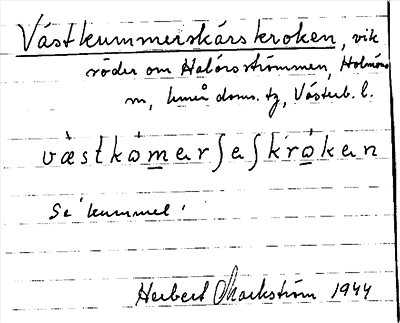 Västkummerskärskroken, vik
söder om Halörsströmmen, Holmöns
sn, Umeå doms. tg, Västerb. l.
västkòmarʃaʃkrókan
Se 'kummel'.
Herbert Markström 1944